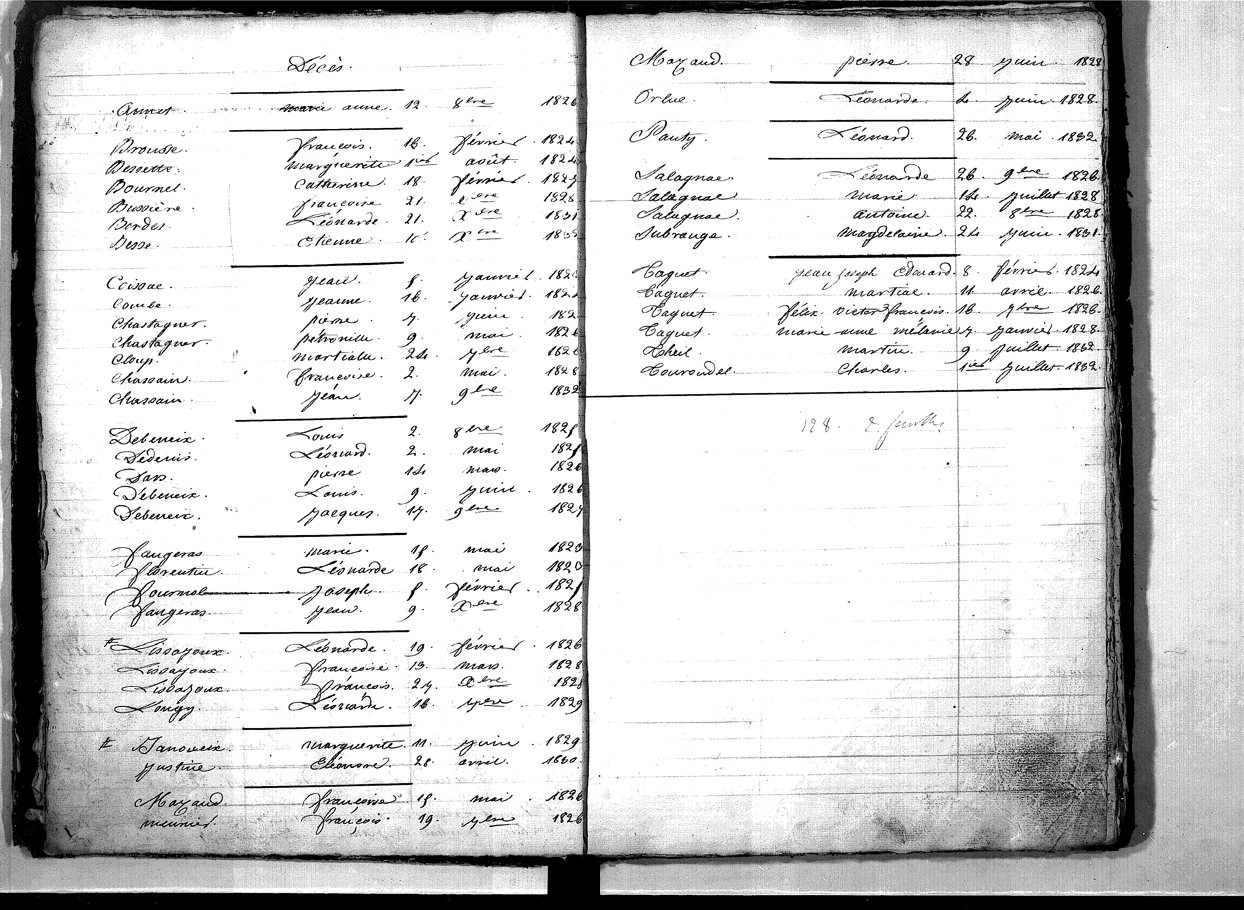 Décès.
Annet marie anne. 12. 8bre 1826
Brousse. françois. 16. février. 1824
Bessette. marguerite 1ier août. 1824
Bournel. Catherine. 18. février. 1825
Bussière. françoise 21. xbre 1828
Bordes. Léonarde. 21. Xbre 1831
Besse. Etienne. 10. Xbre 1832
Coissac. jean. 5. janvier. 182
Combe. jeanne. 16. janvier. 182
Chastagner. pierre. 7. juin. 182
Chastagner. pétronille. 9. mai. 1826
Cloup. martiale. 24. 7bre 1826
Chassain. françoise. 2. mai. 1828
Chassain. jean. 7. 9bre 1832
Debeneix. Louis 2. 8bre 1825
Dedenis. Léonard. 2. mai 1825
Dars. pierre 14. mars. 1826
Debeneix. Louis. 9. juin. 1826
Debeneix. jacques. 17. 9bre 1827
faugeras marie. 15. mai 1823
florentin. Léonarde 18. mai 1823
fournol joseph. 5. février. 1825
faugeras. jean. 9. Xbre 1828
Lissajoux. Léonarde. 19. février. 1826
Lissajoux. françoise. 13. mars. 1828
Lissajoux. françois. 27. Xbre 1828
Longy. Léonarde. 16. 7bre 1829
Janoueix. marguerite. 11. juin. 1829
justine. Eléonore. 28. avril. 1830.
Mazaud. françoise 15. mai 1826
meunier. françois. 19. 7bre 1826
Mazaud. pierre. 28 juin. 1828
Orlue. Léonarde. 4. juin. 1828.
Pauty. Léonard. 26. mai. 1832.
Salagnac. Léonarde 26. 9bre 1826.
Salagnac marie 14. juillet 1828
Salagnac. antoine. 22. 8bre 1828.
Subrange. magdelaine. 24 juin. 1831.
Taguet jean joseph Edouard. 8. février. 1824
Taguet. martial. 11. avril. 1826.
Taguet. félix victor françois. 16. 7bre 1826.
Taguet. marie anne mélanie 7. janvier. 1828.
Theil. martin. 9. juillet. 1832.
Tourondel. Charles. 1ier juillet. 1832.
128. 2 feuilles